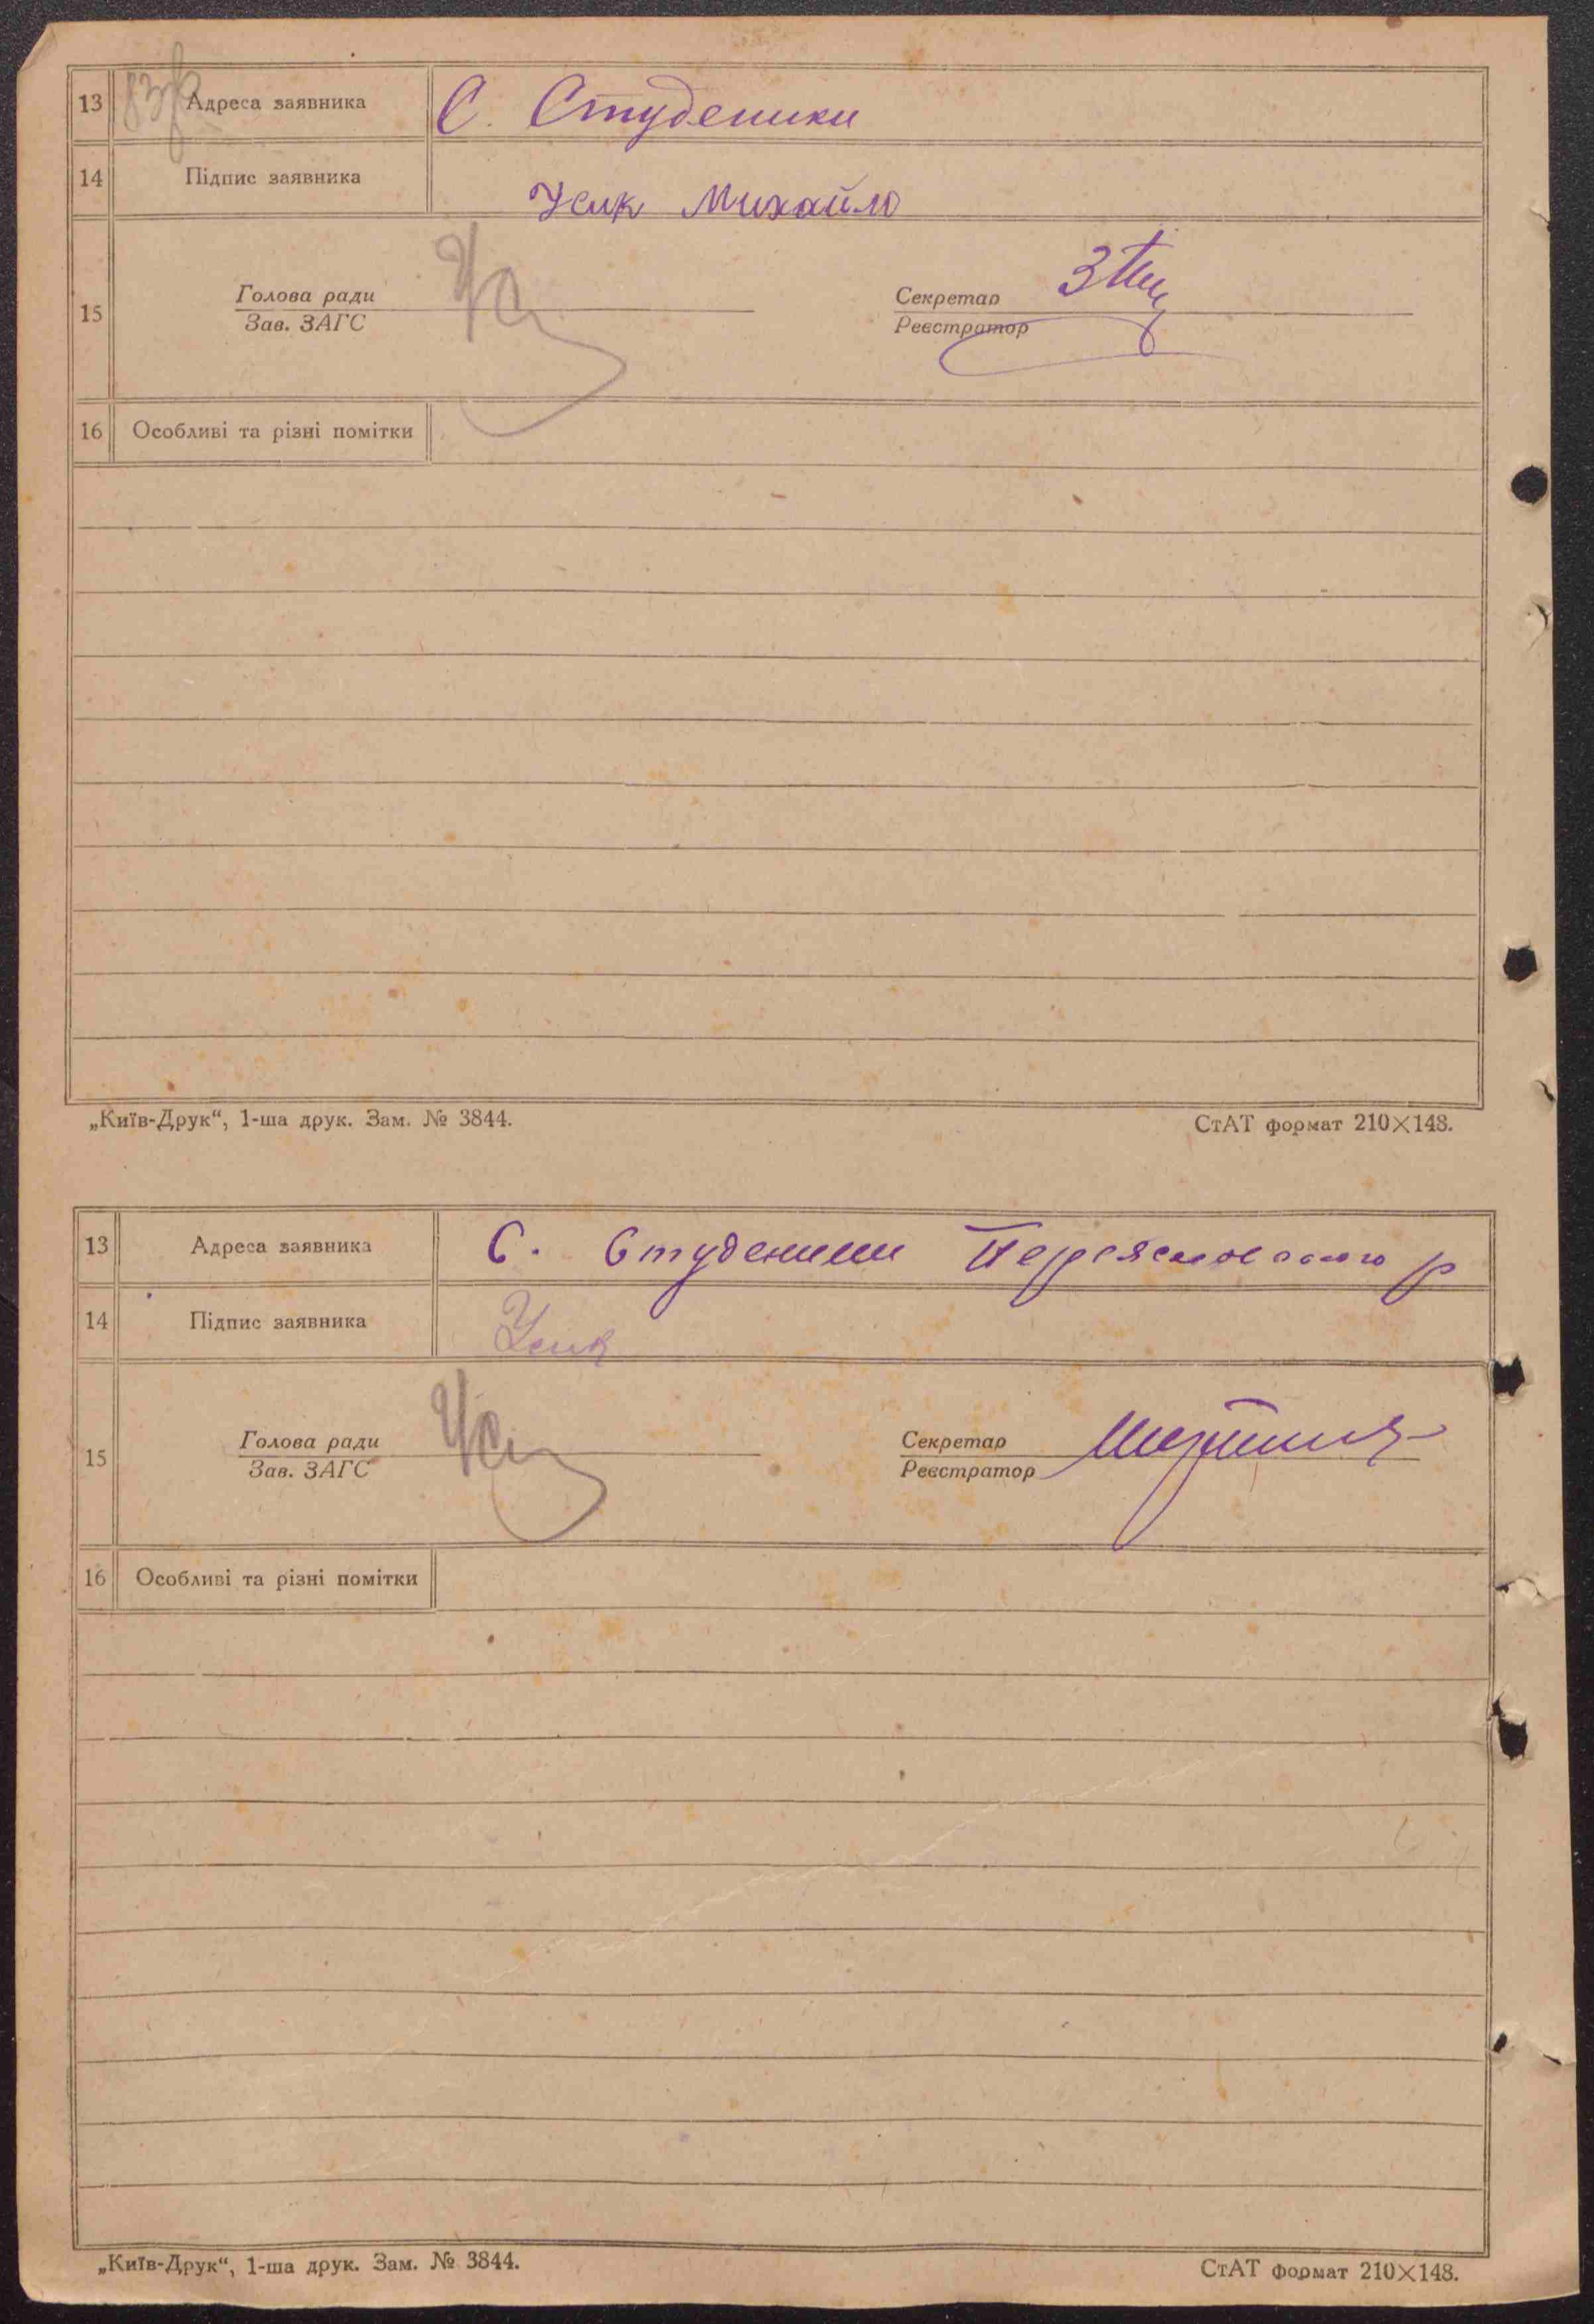 13 Адреса заявника С. Студеники
14 Підпис заявника Усик Михайло
15 Голова ради Секретар
Зав. ЗАГС Реєстратор
16 Особливі та різні помітки
„Київ-Друк“, 1-ша друк. Зам. № 3844. СтАТ формат 210×148.
13 Адреса заявника С. Студеники Переяславського р
14 Підпис заявника Усик
15 Голова ради Секретар
Зав. ЗАГС Реєстратор
16 Особливі та різні помітки
„Київ-Друк“, 1-ша друк. Зам. № 3844. СтАТ формат 210×148.